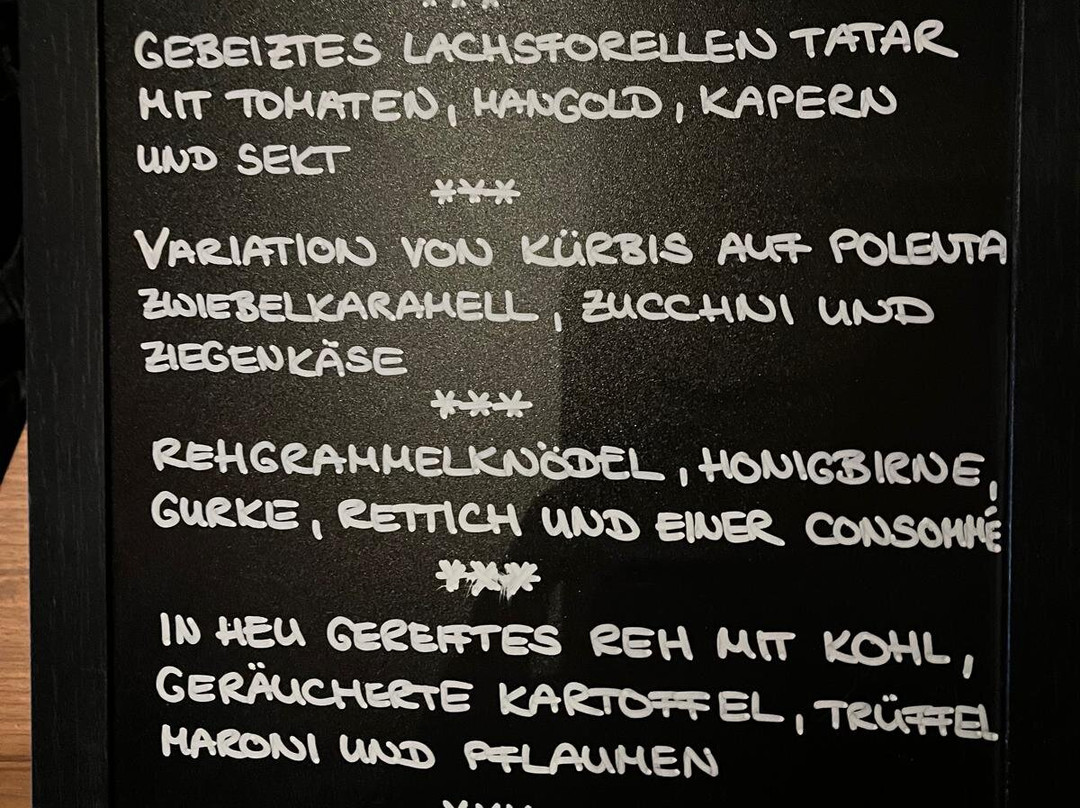 ***
GEBEIZTES LACHSFORELLEN TATAR
MIT TOMATEN, MANGOLD, KAPERN
UND SEKT
***
VARIATION VON KÜRBIS AUF POLENTA
ZWIEBELKARAMELL, ZUCCHNI UND
ZIEGENKÄSE
***
REHGRAMMELKNÖDEL, HONIGBIRNE,
GURKE, RETTICH UND EINER CONSOMMÉ
***
IN HEU GEREIFTES REH MIT KOHL,
GERÄUCHERTE KARTOFFEL, TRÜFFEL
MARONI UND PFLAUMEN
***